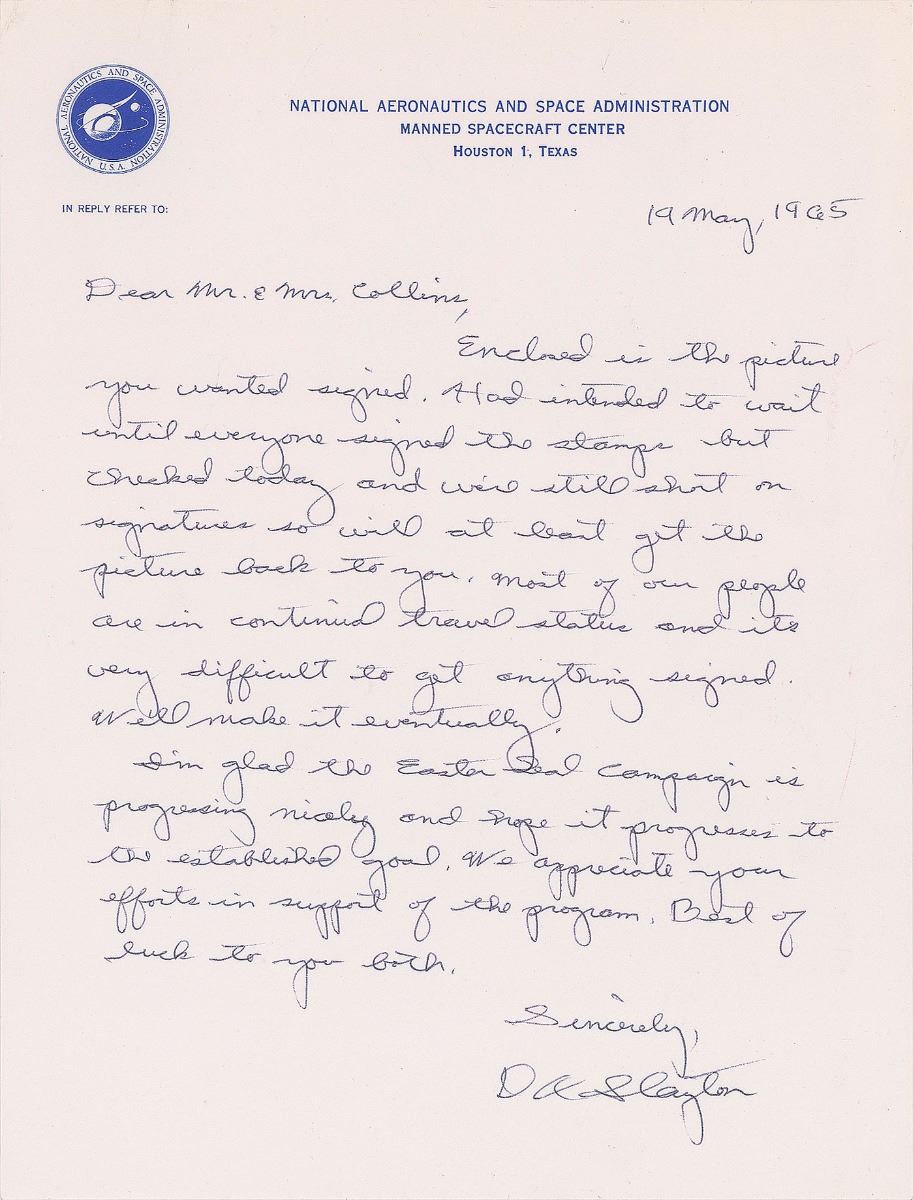 NATIONAL AERONAUTICS AND SPACE ADMINISTRATION
U.S.A.
NATIONAL AERONAUTICS AND SPACE ADMINISTRATION
MANNED SPACECRAFT CENTER
HOUSTON 1, TEXAS
IN REPLY REFER TO:
19 May, 1965
Dear Mr. & Mrs. Collins,
Enclosed is the picture
you wanted signed. Had intended to wait
until everyone signed the stamps but
checked today and we're still short on
signatures so will at least get the
picture back to you. Most of our people
are in continual travel status and its
very difficult to get anything signed.
We'll make it eventually.
I'm glad the Easter Seal Campaign is
progressing nicely and hope it progresses to
the established goal. We appreciate your
efforts in support of the program. Best of
luck to you both.
Sincerely,
D K Slayton